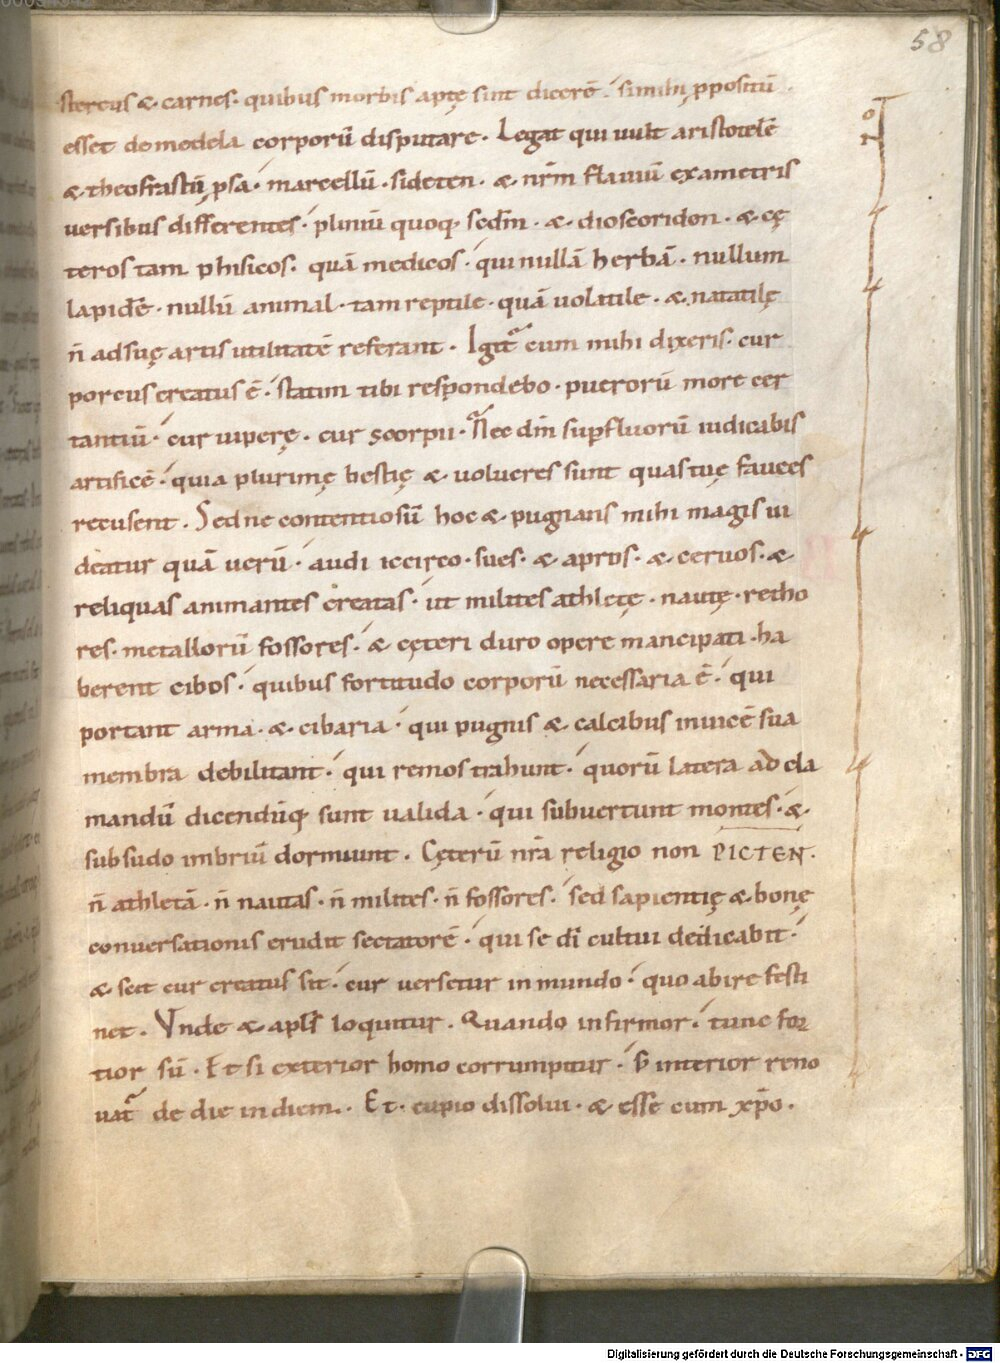 58
stercus & carnes · quibus morbis aptę sint dicerē · si mihi ppositū
esset de medela corporū disputare · Legat qui uult aristotelē
& theofrastū psa · marcellū · sideten · & nr̄m flauiū exametris
uersibus differentes · pliniū quoq; scd̄m · & dioscoriden · & cę
teros tam phisicos · quā medicos · qui nullā herbā · nullum
lapidē · nullū animal · tam reptile · quā uolatile · & natatilę
n̄ ad suę artis utilitatē referant · Igit᷑ cum mihi dixeris · cur
porcus creatus ē · statim tibi respondebo · puerorū more cer
tantiū · cur uiperę · cur scorpii · Nec dm̄ supfluorū iudicabis
artificē · quia plurimę bestię & uolucres sunt quas tuę fauces
recusent . Sed ne contentiosū hoc & pugnans mihi magis ui
deatur quā uerū · audi iccirco · sues · & apros · & ceruos · &
reliquas animantes creatas · ut milites athletę · nautę · retho
res · metallorū fossores · & cęteri duro opere mancipati · ha
berent cibos · quibus fortitudo corporū necessaria ē · qui
portant arma · & cibaria · qui pugnis & calcibus inuicē sua
membra debilitant · qui remos trahunt · quorū latera ad cla
mandū dicendūq; sunt ualida · qui subuertunt montes · &
sub sudo imbriū dormiunt . Cęterū nr̄a religio non PICTEN ·
n̄ athletā · n̄ nautas · n̄ milites · n̄ fossores · sed sapientię & bonę
conuersationis erudit sectatorē · qui se dī cultui dedicabit ·
& scit cur creatus sit · cur uersetur in mundo · quo abire festi
net . Vnde & apl's loquitur . Quando infirmor · tunc for
tior sū . Et si exterior homo corrumpitur · s; interior reno
uat᷑ de die in diem . Et · cupio dissolui · & esse cum xp̄o .
Digitalisierung gefördert durch die Deutsche Forschungsgemeinschaft - DFG